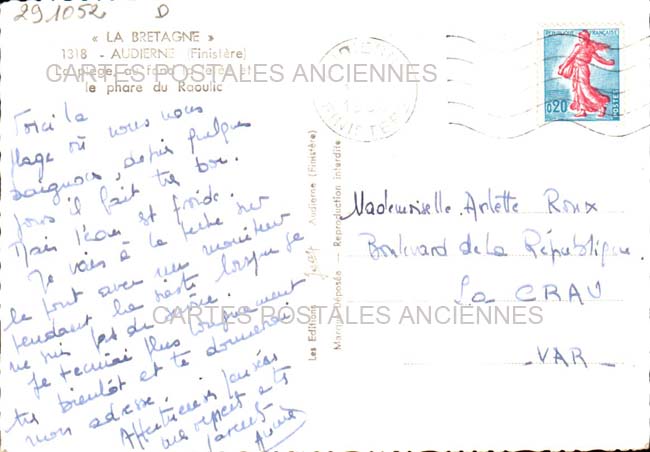 291052 D
« LA BRETAGNE »
1318 - AUDIERNE (Finistère)
La plage, au fond la jetée et
le phare du Raoulic
CARTES POSTALES ANCIENNES
REPUBLIQUE FRANÇAISE
0,20
POSTES
AUDIERNE
FINISTERE
Voici la
plage où nous nous
baignons, depuis quelques
jours il fait très bon.
Mais l'eau est froide.
Je vais à la pêche sur
le pont avec un moniteur
pendant la sieste lorsque je
ne suis pas de
Je t'écrirai plus longuement
très bientôt et te donnerai
mon adresse.
Affectueuses pensées
mes respects à tes
parents
Les Editions Audierne (Finistère)
Marque Déposée - Reproduction Interdite
Mademoiselle Arlette Roux
Boulevard de La République
La CRAU
- VAR -
CARTES POSTALES ANCIENNES